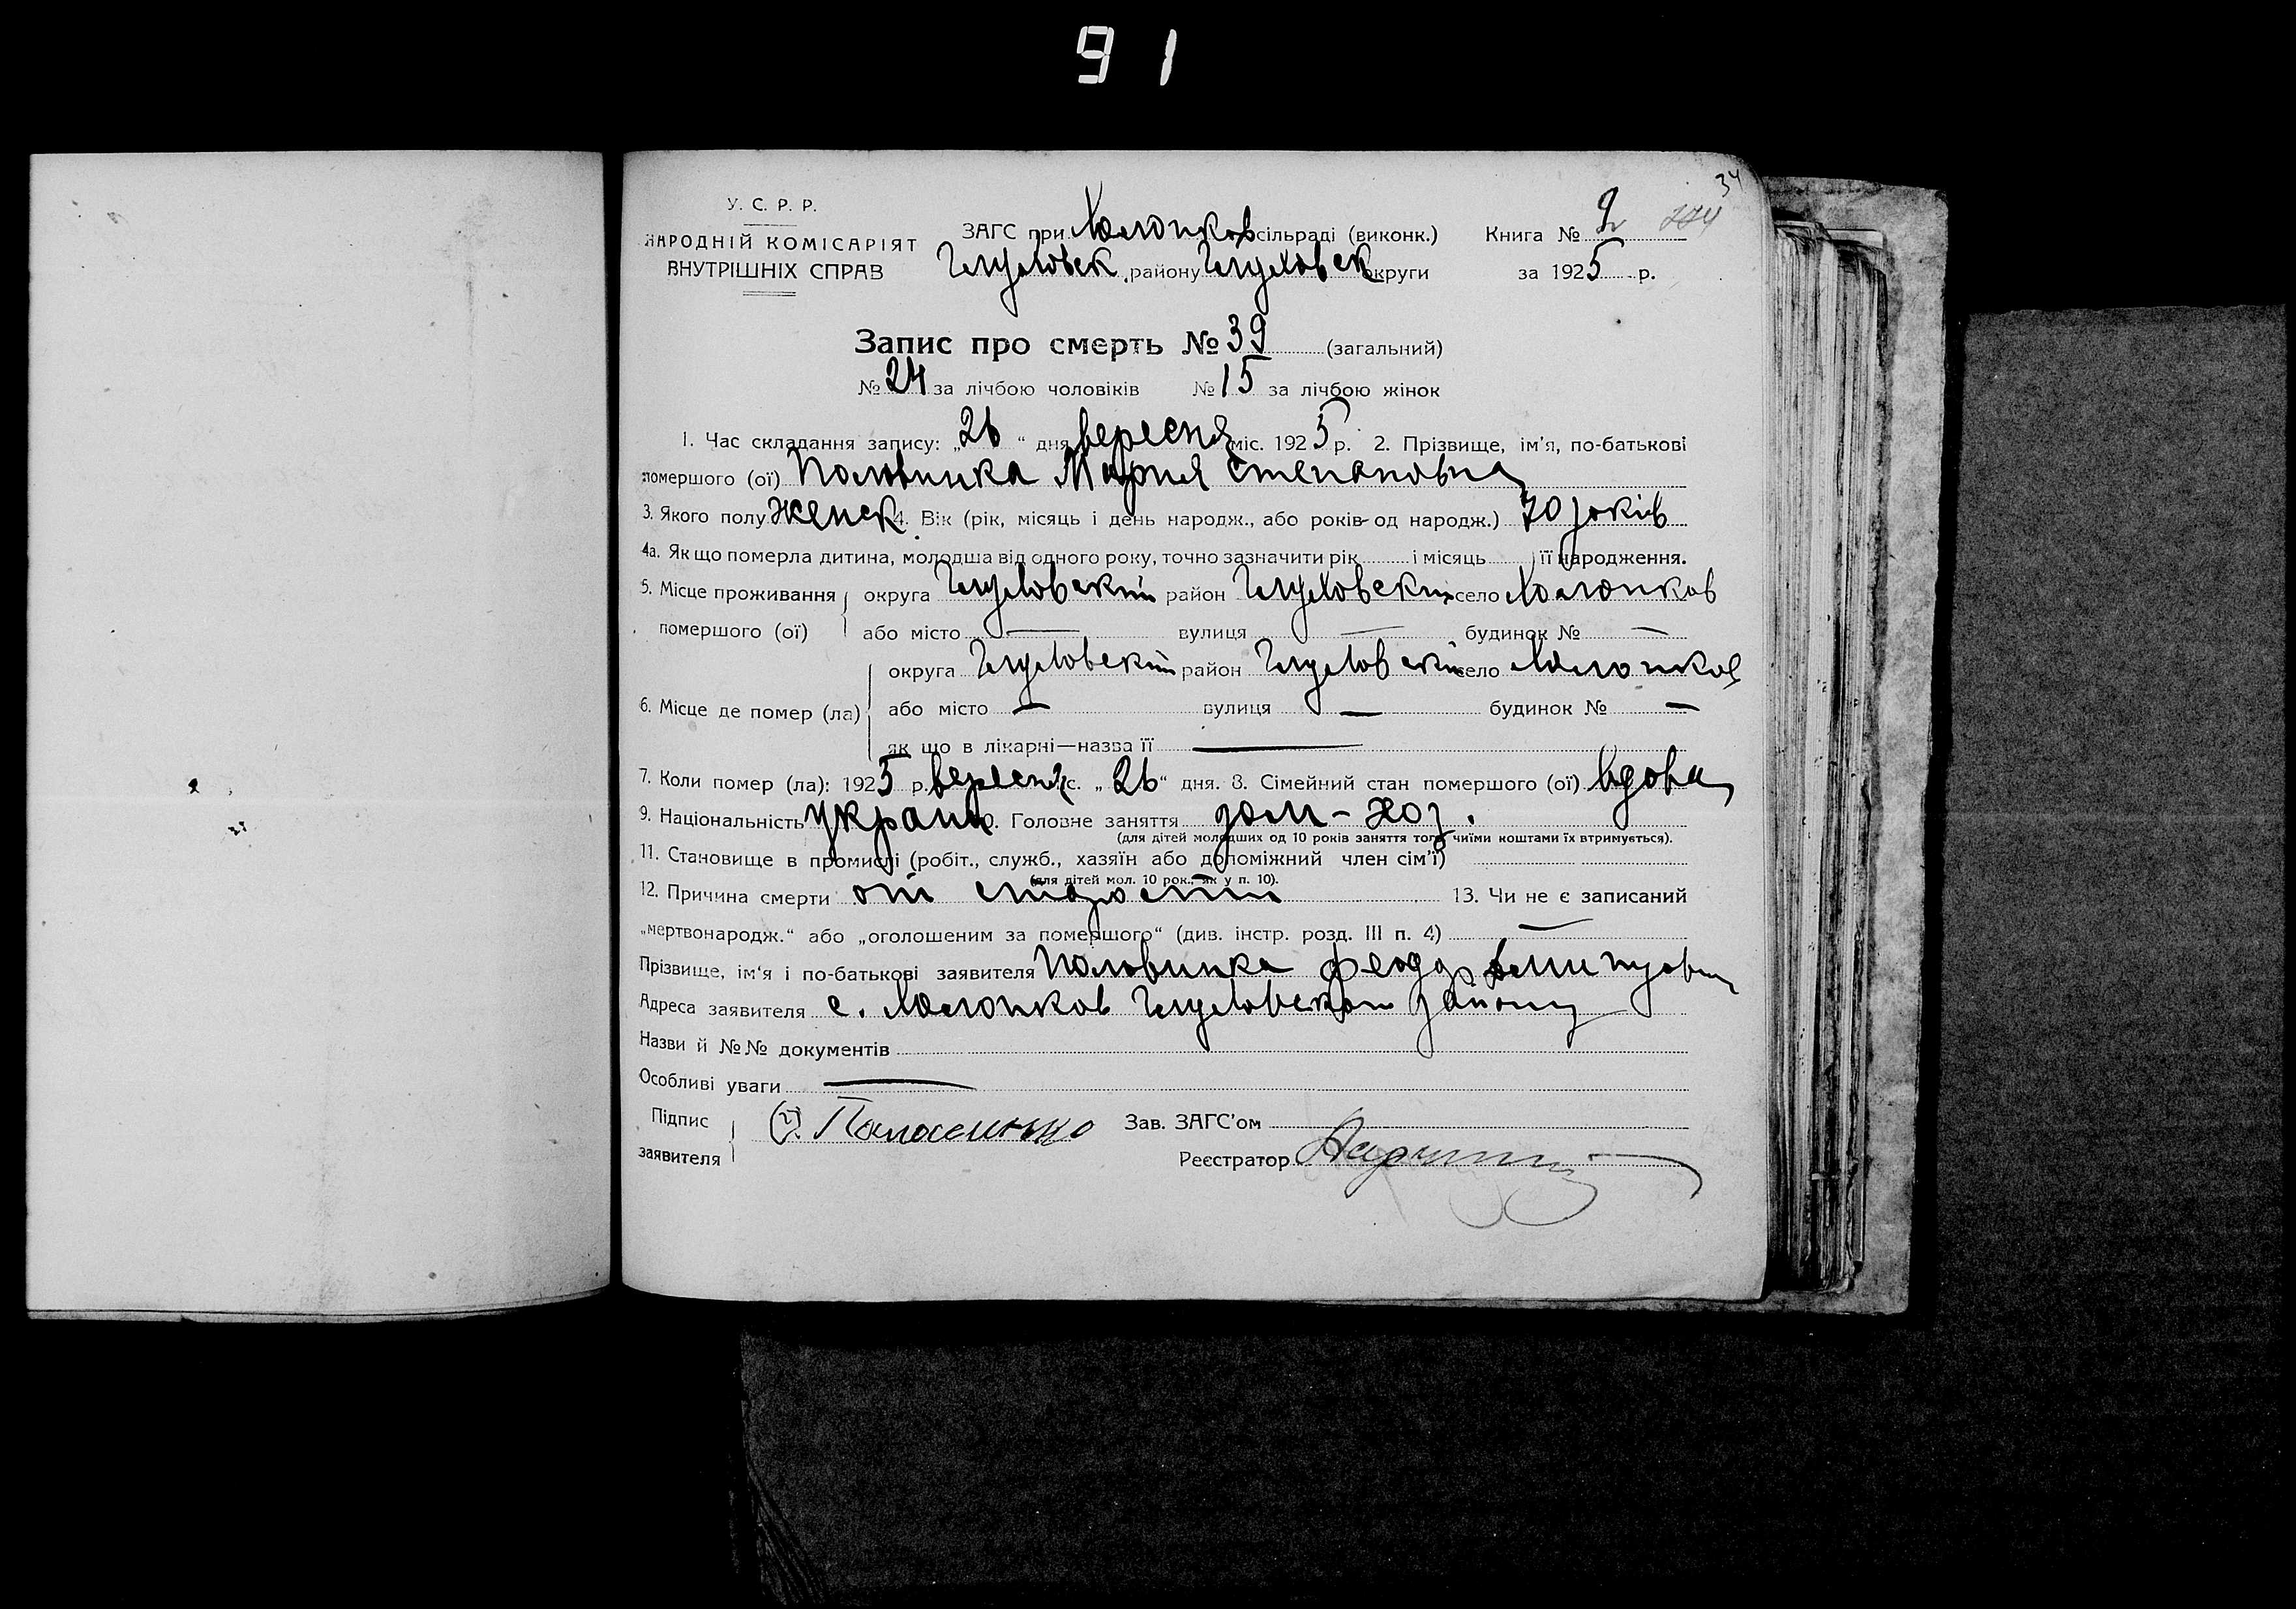 91
34
У. С. Р. Р.
НАРОДНІЙ КОМІСАРІЯТ
ВНУТРІШНІХ СПРАВ
ЗАГС при Холопков сільраді (виконк.) Книга № 2
Глуховск району Глуховск округи за 1925 р.
Запис про смерть № 39 (загальний)
№ 24 за лічбою чоловіків № 15 за лічбою жінок
1. Час складання запису: „26“ дня вересня міс. 1925 р. 2. Прізвище, ім'я, по-батькові
помершого (ої) Половинка Мария Степановна
3. Якого полу женск 4. Вік (рік, місяць і день народж., або років-од народж.) 70 років
4а. Як що померла дитина, молодша від одного року, точно зазначити рік і місяць її народження.
5. Місце проживання округа Глуховский район Глуховский село Холопков
помершого (ої) або місто — вулиця — будинок № —
округа Глуховский район Глуховский село Холопков
6. Місце де помер (ла) або місто — вулиця — будинок № —
як що в лікарні—назва її —
7. Коли помер (ла): 1925 р. вересня с. „26“ дня. 8. Сімейний стан помершого (ої) вдова
9. Національність украин 10. Головне заняття дом-хоз.
(для дітей молодших од 10 років заняття того чиїми коштами їх втримується).
11. Становище в промислі (робіт., служб., хазяїн або допоміжний член сім'ї)
(для дітей мол. 10 рок., як у п. 10).
12. Причина смерти от старости 13. Чи не є записаний
„мертвонародж.“ або „оголошеним за помершого“ (див. інстр. розд. III п. 4) —
Прізвище, ім'я і по-батькові заявителя Половинка Феодор
Адреса заявителя с. Холопков Глуховского району
Назви й №№ документів
Особливі уваги —
Підпис
заявителя
Зав. ЗАГС'ом
Реєстратор